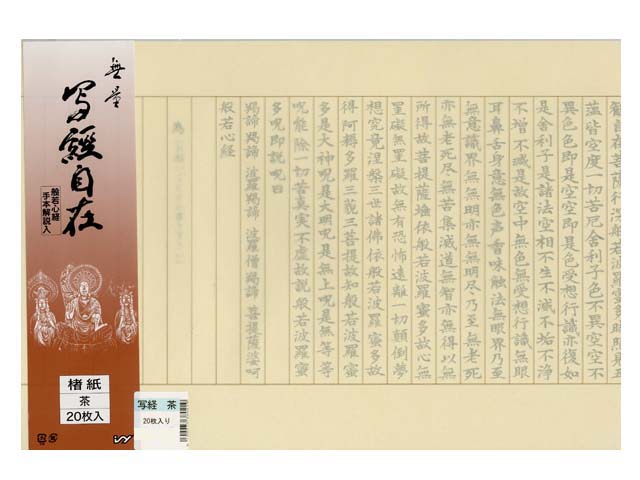 無量
写経自在
般若心経
手本解説入
楮紙
茶
20枚入
写経 茶
20枚入り
観自在菩薩行深般若波羅蜜多時照見五
蘊皆空度一切苦厄舍利子色不異空空不
異色色即是空空即是色受想行識亦復如
是舍利子是諸法空相不生不滅不垢不淨
不増不減是故空中無色無受想行識無眼
耳鼻舌身意無色声香味触法無眼界乃至
無意識界無無明亦無無明尽乃至無老死
亦無老死尽無苦集滅道無智亦無得以無
所得故菩提薩埵依般若波羅蜜多故心無
罣礙無罣礙故無有恐怖遠離一切顛倒夢
想究竟涅槃三世諸佛依般若波羅蜜多故
得阿耨多羅三藐三菩提故知般若波羅蜜
多是大神呪是大明呪是無上呪是無等等
呪能除一切苦真実不虚故説般若波羅蜜
多呪即説呪曰
羯諦羯諦 波羅羯諦 波羅僧羯諦 菩提薩婆呵
般若心経
為